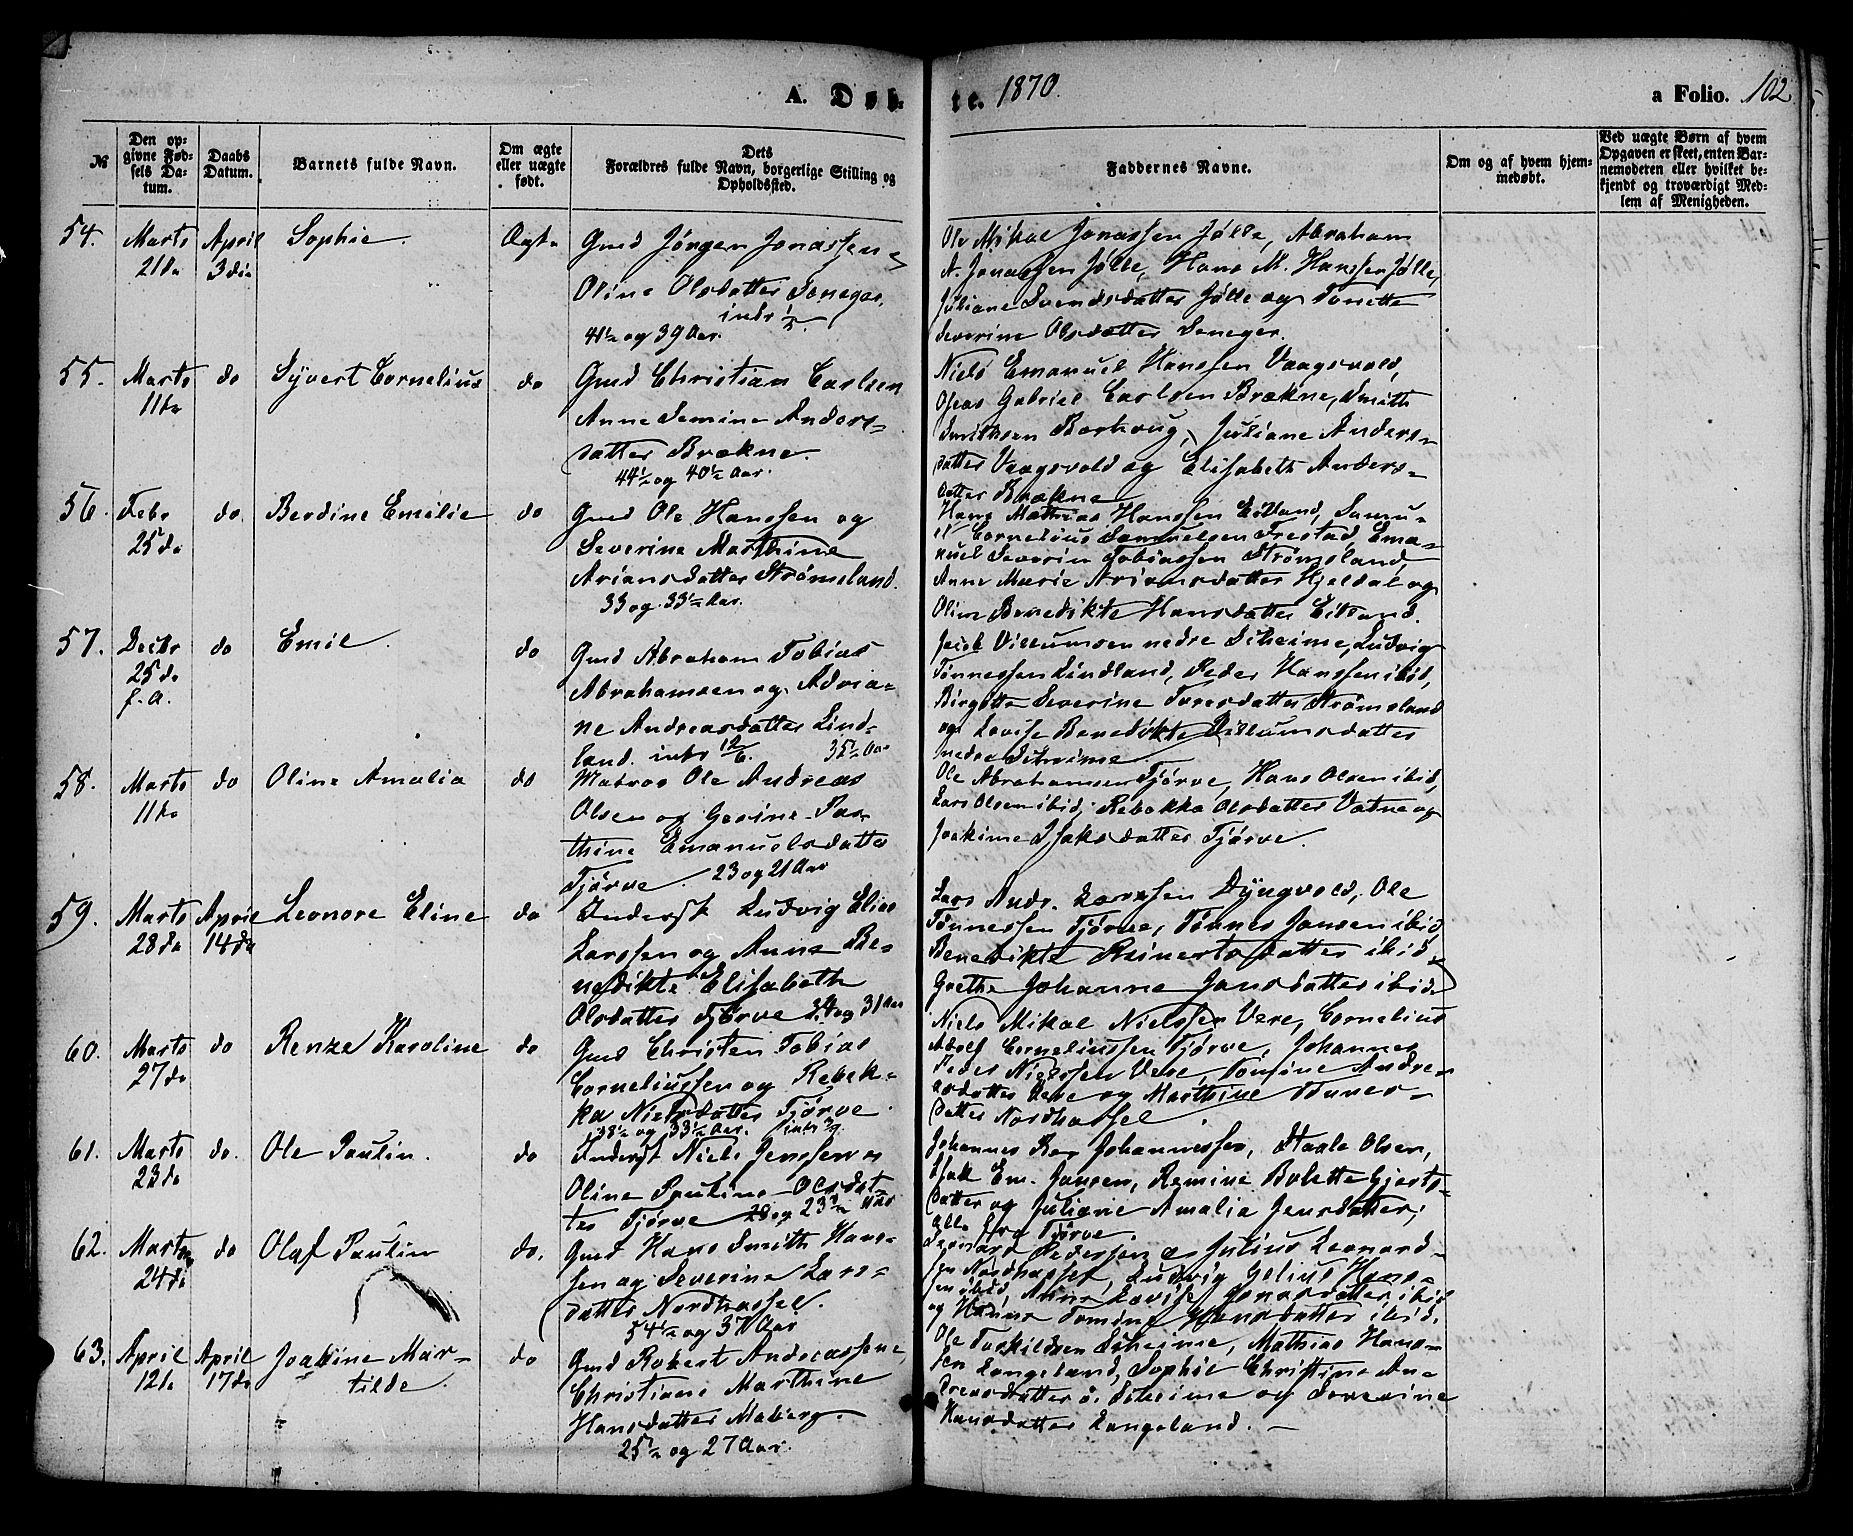 A. Døb-
te. 1870.
a Folio. 102
№
Den op-
givne Fød-
sels Da-
tum.
Daabs
Datum.
Barnets fulde Navn.
Om ægte
eller uægte
født.
Dets
Forældres fulde Navn, borgerlige Stilling og
Opholdssted.
Faddernes Navne.
Om og af hvem hjem-
medøbt.
Ved uægte Børn af hvem
Opgaven er skeet, enten Bar-
nemoderen eller hvilket be-
kjendt og troværdigt Med-
lem af Menigheden.
54. Marts April Sophie. Ægte
21de 3die
Gmd Jørgen Jonassen
Oline Olsdatter Seneger.
intr 1/5
41½ og 39 Aar.
Ole Mikal Jonassen Jølle, Abraham
A. Jonassen Jølle, Hans M. Hanssen Jølle,
Juliane Svendsdatter Jølle og Tonette
Severine Olsdatter Seneger.
55. Marts do Syvert Cornelius do
11te
Gmd Christian Carlsen
Anne Semine Anders-
datter Brækne.
44½ og 40½ Aar.
Niels Emanuel Hanssen Vaagsvold,
Oseas Gabriel Carlsen Brækne, Smith
Smithsen Barhaug, Juliane Anders-
datter Vaagsvold og Elisabeth Anders-
datter Brækne
56. Febr do. Berdine Emilie do
25de
Gmd Ole Hanssen og
Severine Marthine
Ariansdatter Strømsland.
33 og 33½ Aar.
Hans Mathias Hanssen Eitland, Samu-
el Cornelius Samuelsen Frestad, Ema-
nuel Severin Tobiassen Strømsland,
Anne Marie Ariansdatter Hjeldal og
Oline Benedikte Hansdatter Eitland.
57. Decbr do Emil. do
25de
f. A.
Gmd Abraham Tobias
Abrahamsen og Adria-
ne Andreasdatter Lind-
land. intr 12/6. 35½ Aar
Jacob Villumsen nedre Skeime, Ludvig
Tønnessen Lindland, Peder Hanssen ibid,
Birgitte Severine Toresdatter Strømsland
og Lovise Benedikte Villumsdatter
nedre Skeime.
58. Marts do Oline Amalia do
11te
Matros Ole Andreas
Olsen og Gesine
thine Emanuelsdatter
Tjørve. 23 og 21 Aar
Ole Abrahamsen Tjørve, Hans Olsen ibid,
Lars Olsen ibid, Rebekka Olsdatter Vatne og
Joakime Isaksdatter Tjørve.
59. Marts April Leonore Eline do
28de 14de
Inderst Ludvig Elias
Larssen og Anne Be-
nedikte Elisabeth
Olsdatter Tjørve 34 og 31 Aar
Lars Andr. Larssen Dyngvold, Ole
Tønnessen Tjørve, Tønnes Jansen ibid
Benedikte Reinertsdatter ibid
Grethe Johanne Jansdatter ibid.
60. Marts do Renze Karoline do
27de
Gmd Christen Tobias
Corneliussen og Rebek-
ka Nielsdatter Tjørve.
38½ og 33½ Aar.
Niels Mikal Nielssen Vere, Cornelius
Adolf Corneliussen Tjørve, Johannes
Peder Nielssen Vere, Tomine Andre-
asdatter Vere og Marthine Tønnes-
datter Nordhassel.
61. Marts do. Ole Paulin. do
23de
Inderst Niels Jenssen
Oline Pauline Olsdat-
ter Tjørve 28 og 23½ Aar
Johannes Johannessen, Staale Olsen,
Isak Em. Jansen, Remine Bolette Gjerts-
datter og Juliane Amalia Jensdatter,
alle fra Tjørve.
62. Marts do Olaf Paulin do.
24de
Gmd Hans Smith Hans-
sen og Severine Lars-
datter Nordhassel.
54½ og 37 Aar
Pedersen Julius Leonard-
sen Nordhassel, Ludvig Gelius Hans-
sen ibid, Anne Lovise Jonasdatter ibid
og Hanne Tomine Hansdatter ibid.
63. April April Joakine Mar- do
12te 17de tilde.
Gmd Robert Andreassen
Christiane Marthine
Hansdatter Maberg.
25½ og 27 Aar.
Ole Torkildsen Skeime, Mathias Hans-
sen Langeland, Sophie Christine An-
dreasdatter ö. Skeime og Severine
Hansdatter Langeland.